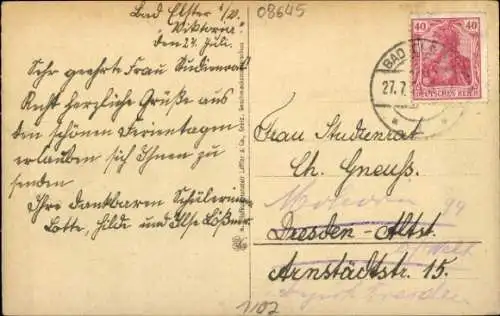 08645
Bad Elster i/V.
"Viktoria"
den 27. Juli.
Sehr geehrte Frau Studienrat
Recht herzliche Grüße aus
den schönen Ferientagen
erlauben sich Ihnen zu
senden
Ihre dankbaren Schülerinnen
Lotte, Hilde und Ilse Lößner
40 40
DEUTSCHES REICH
BAD ELSTER
27.7.
Frau Studienrat
Ch. Gneuss.
Mohorn 99
Dresden-Altst.
Arnstädtstr. 15.
Dresden
1102